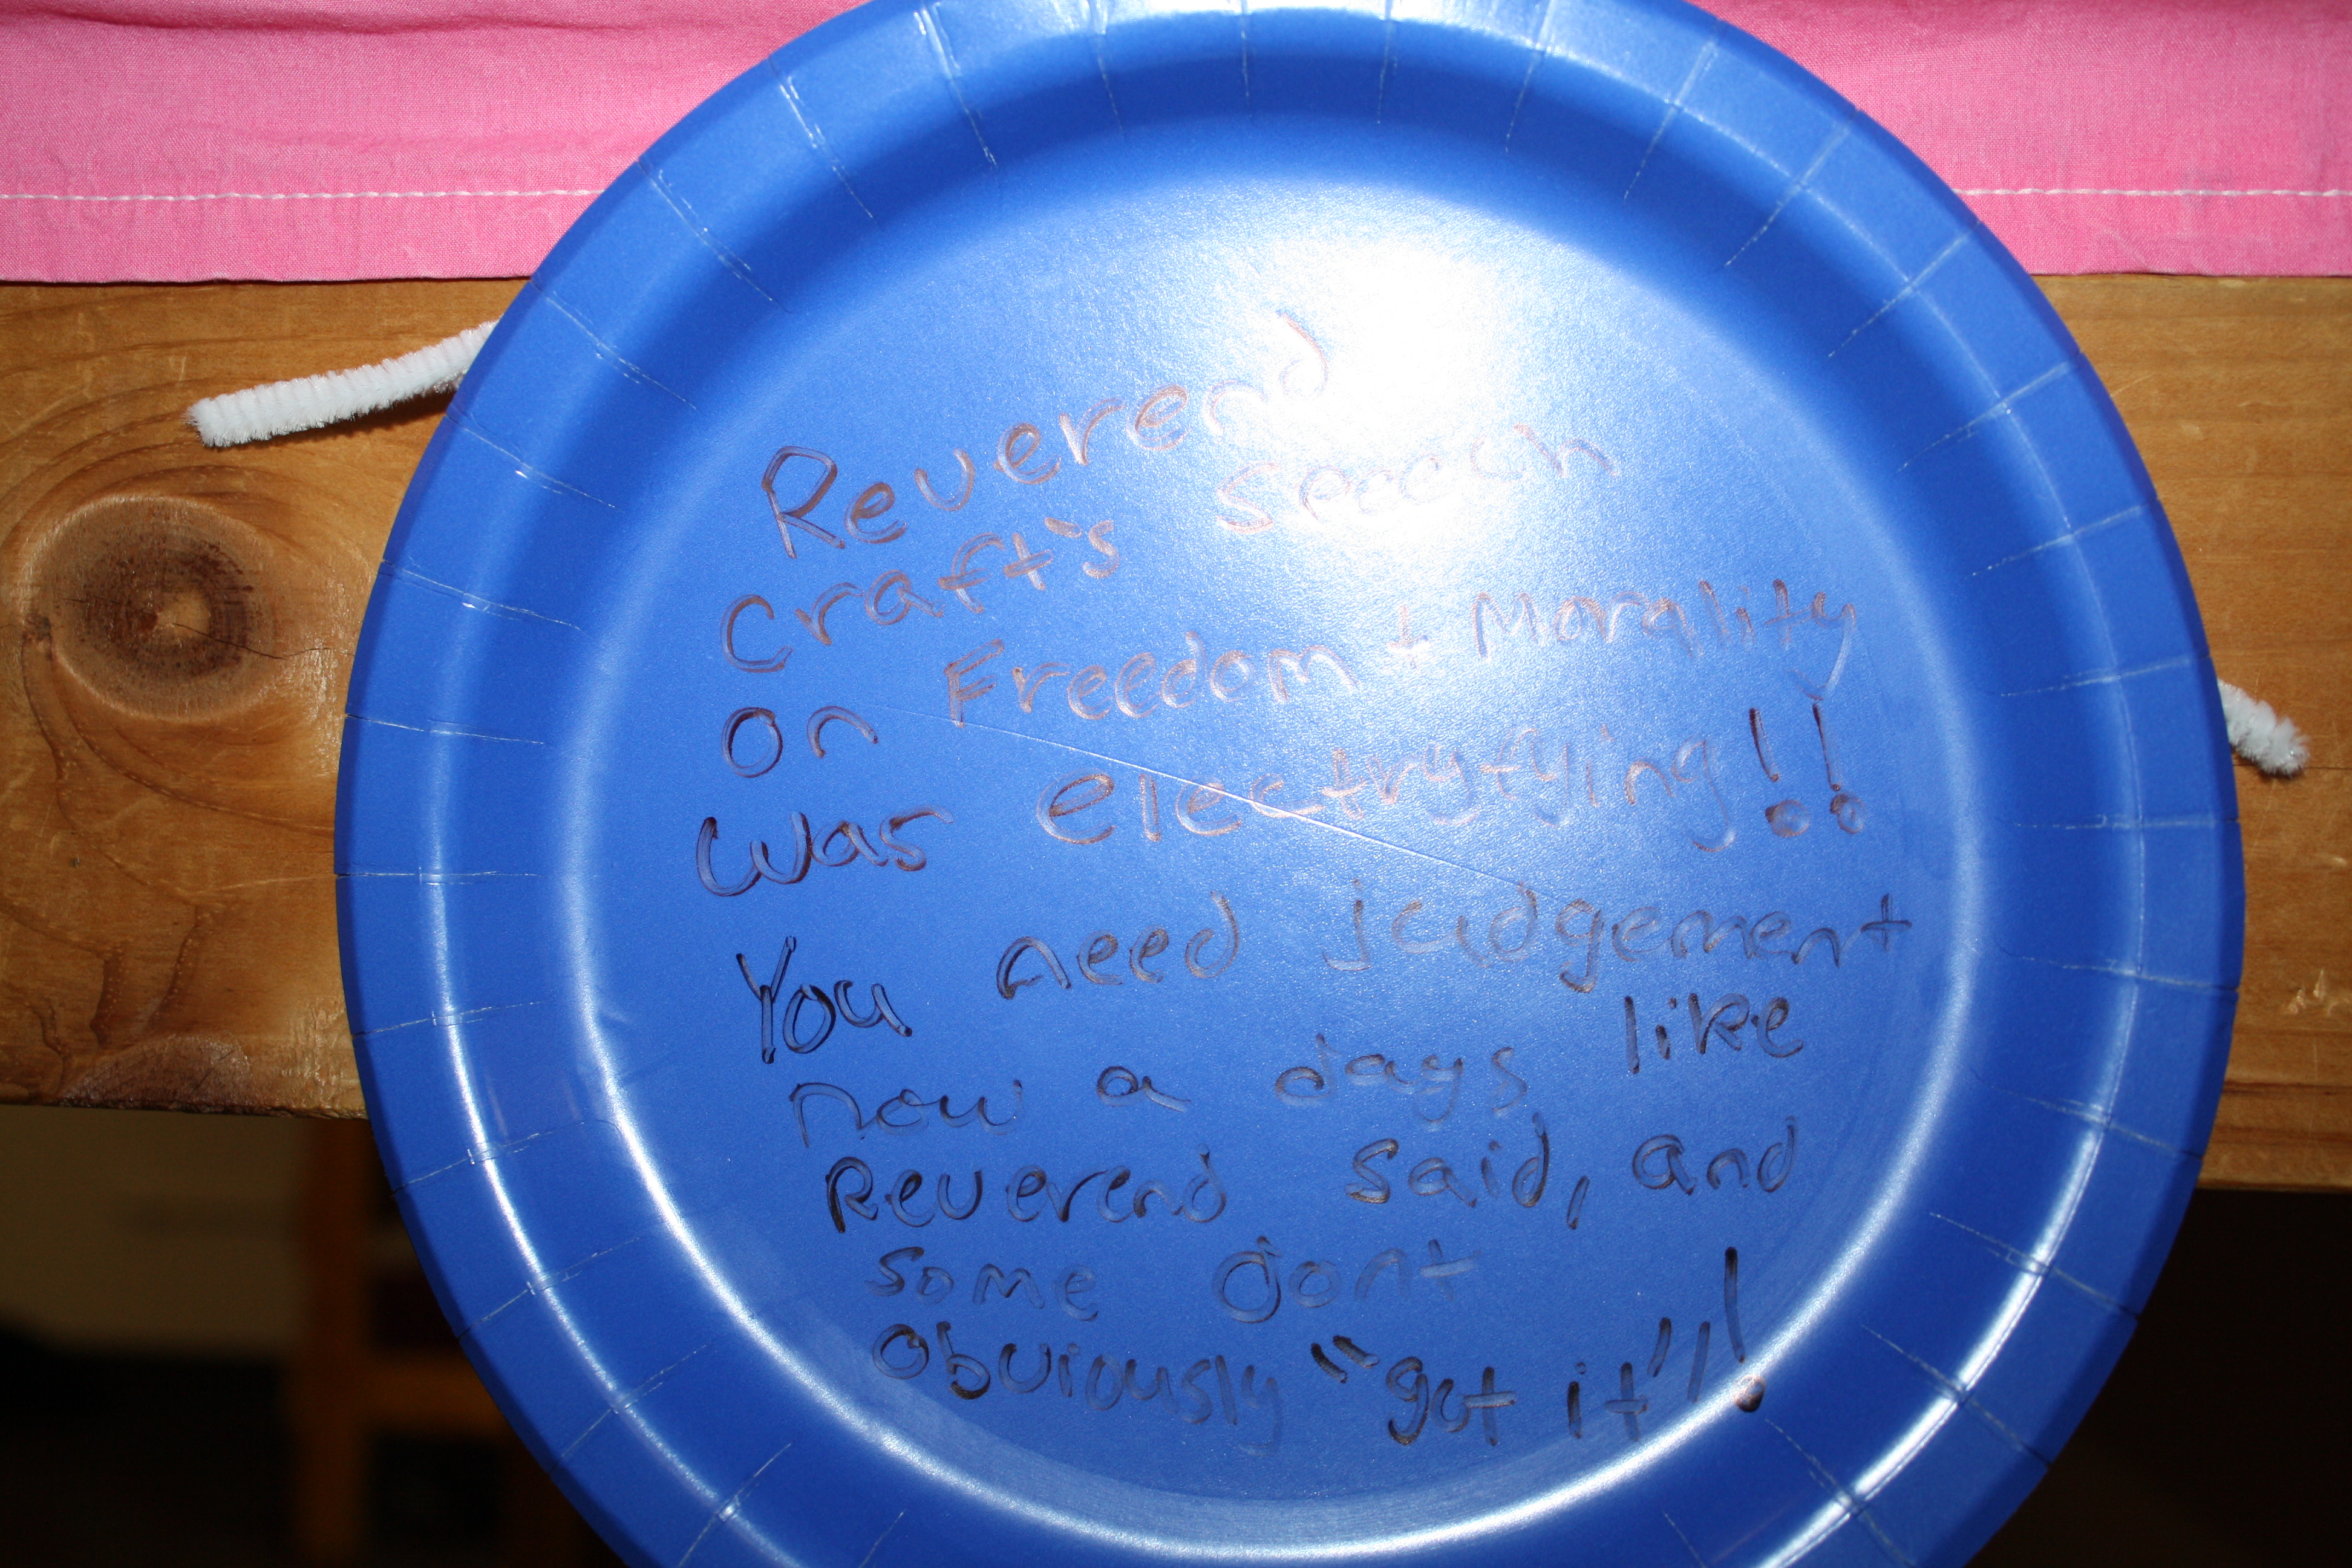 Reverend
Craft's Speech
on Freedom + Morality
was electryfying!!
You need judgement
now a days, like
Reverend said, and
some dont
obviously "get it"!